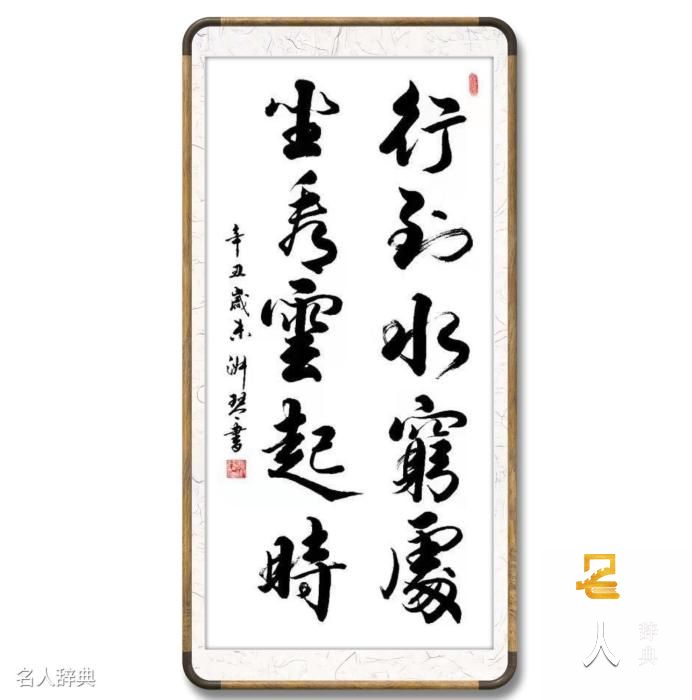 行到水窮處
坐看雲起時
辛丑歲末淋琴書
名人辞典
名人辞典